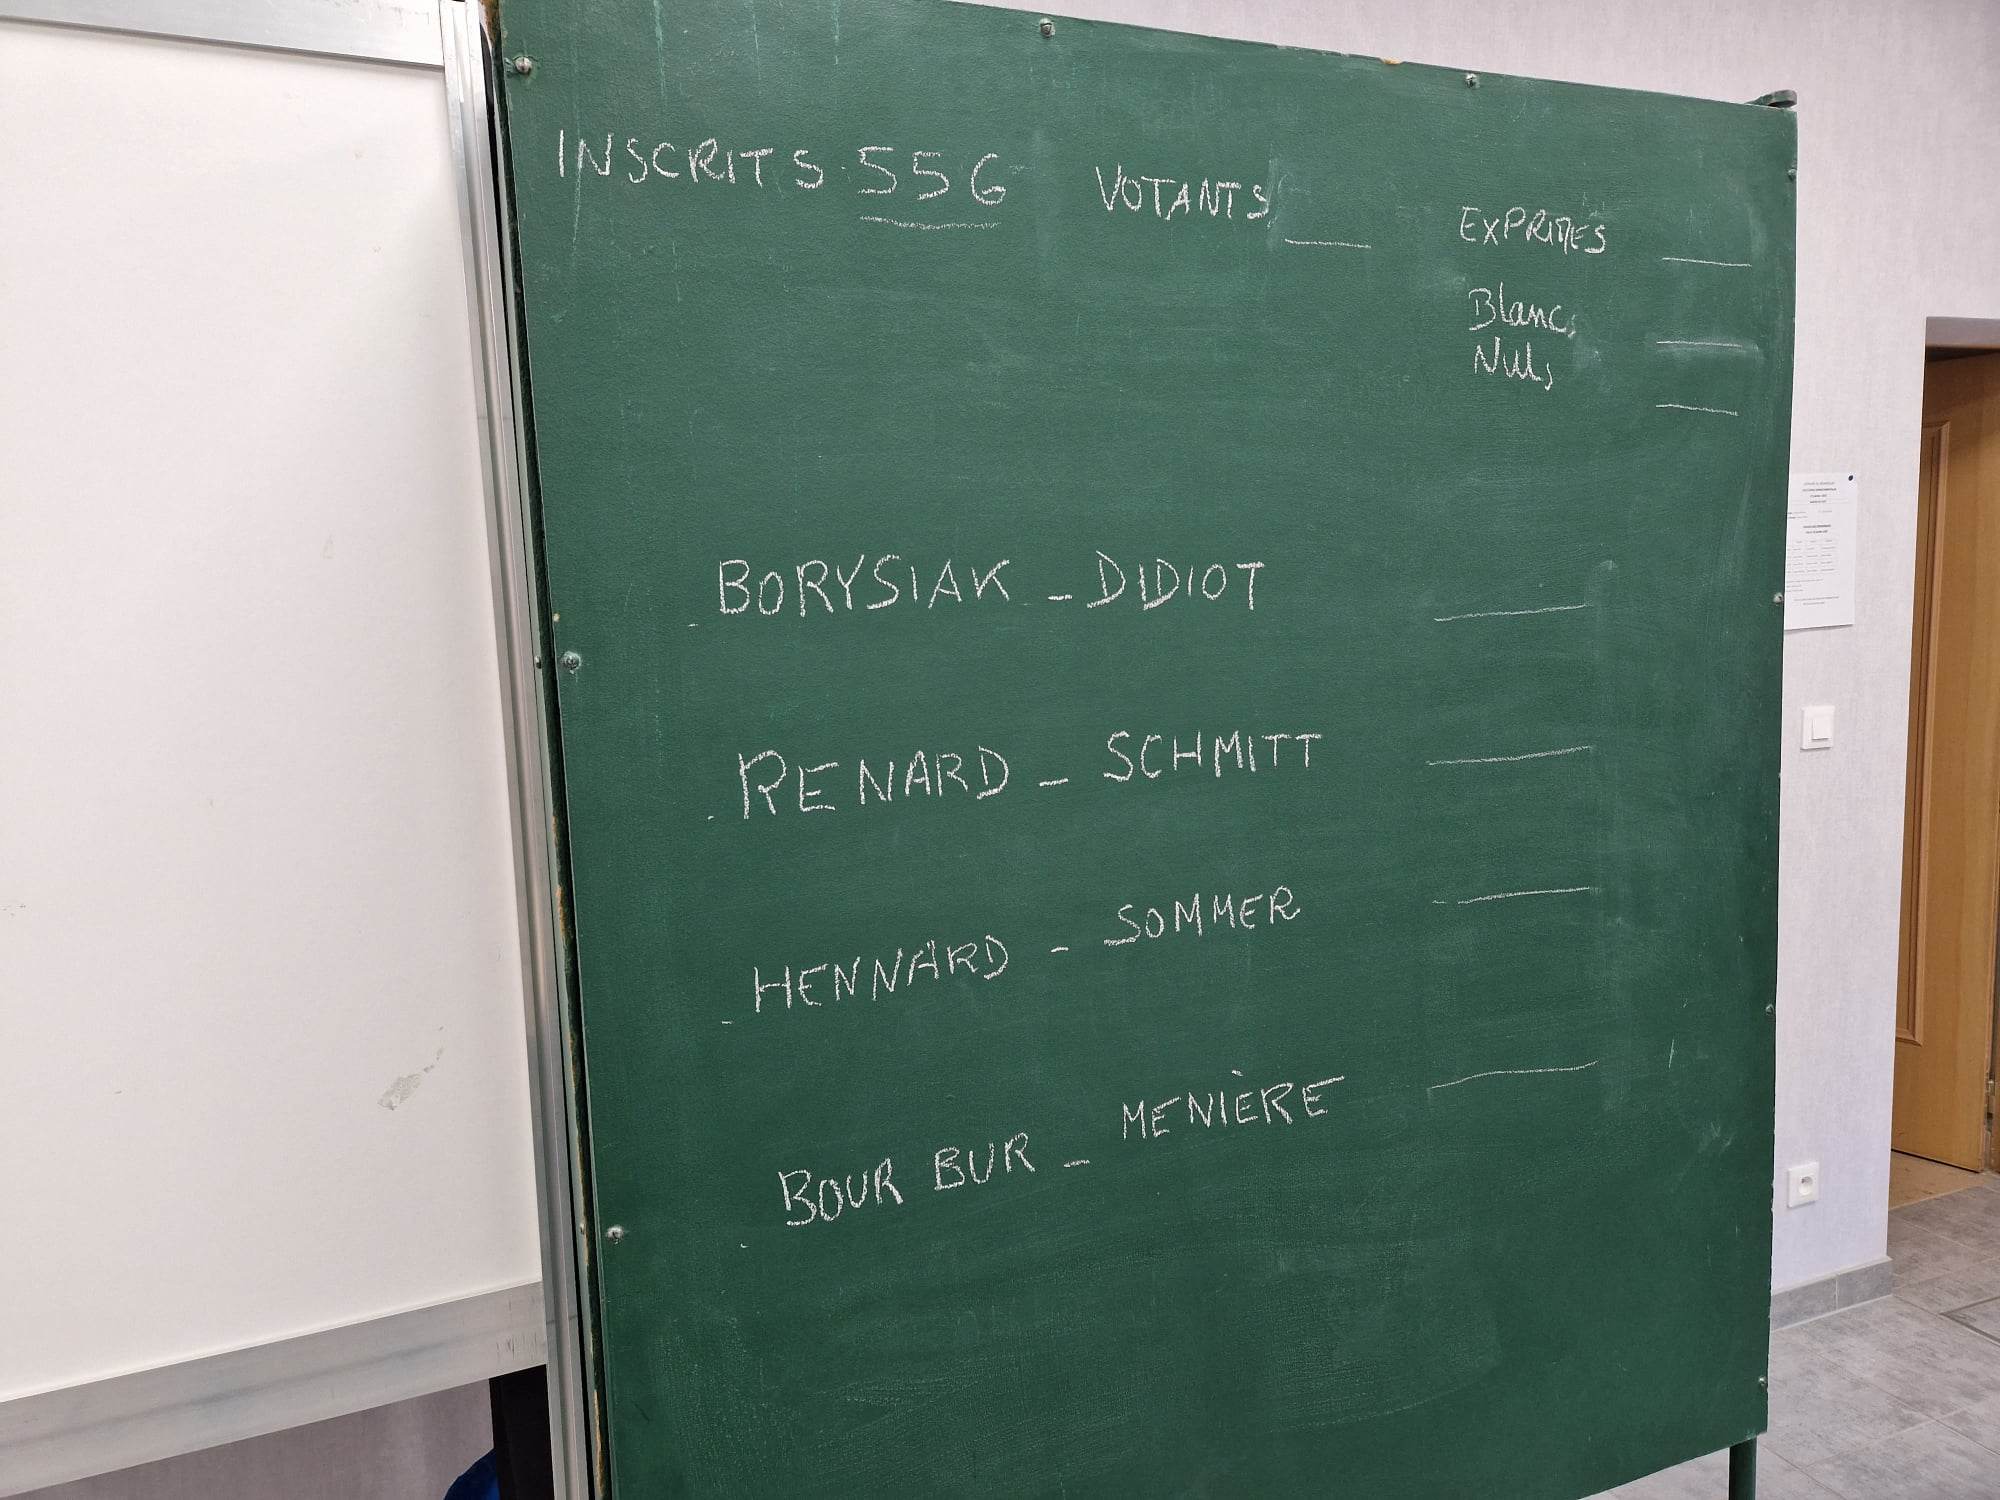 INSCRITS 556 VOTANTS ___ EXPRIMÉS ___
Blancs ___
Nuls ___
- BORYSIAK - DIDIOT ___
- RENARD - SCHMITT ___
- HENNARD - SOMMER ___
- BOUR BUR - MENIÈRE ___